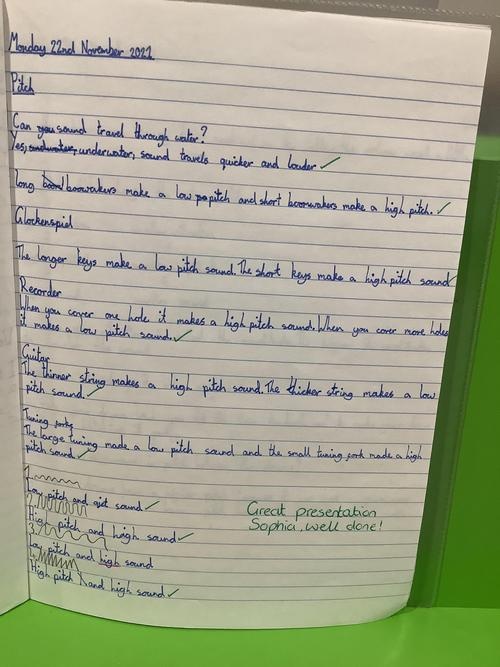 Monday 22nd November 2021
Pitch
Can you sound travel through water?
Yes, underwater, sound travels quicker and louder ✓
long boomwakers make a low pitch and short boomwakers make a high pitch. ✓
Glockenspiel
The longer keys make a low pitch sound. The short keys make a high pitch sound ✓
Recorder
When you cover one hole it makes a high pitch sound. When you cover more holes
it makes a low pitch sound. ✓
Guitar
The thinner string makes a high pitch sound. The thicker string makes a low
pitch sound. ✓
Tuning forks
The large tuning made a low pitch sound and the small tuning fork made a high
pitch sound. ✓
1.
Low pitch and qiet sound ✓
2.
High pitch and high sound ✓
3.
Low pitch and high sound
High pitch and high sound ✓
Great presentation
Sophia, well done!